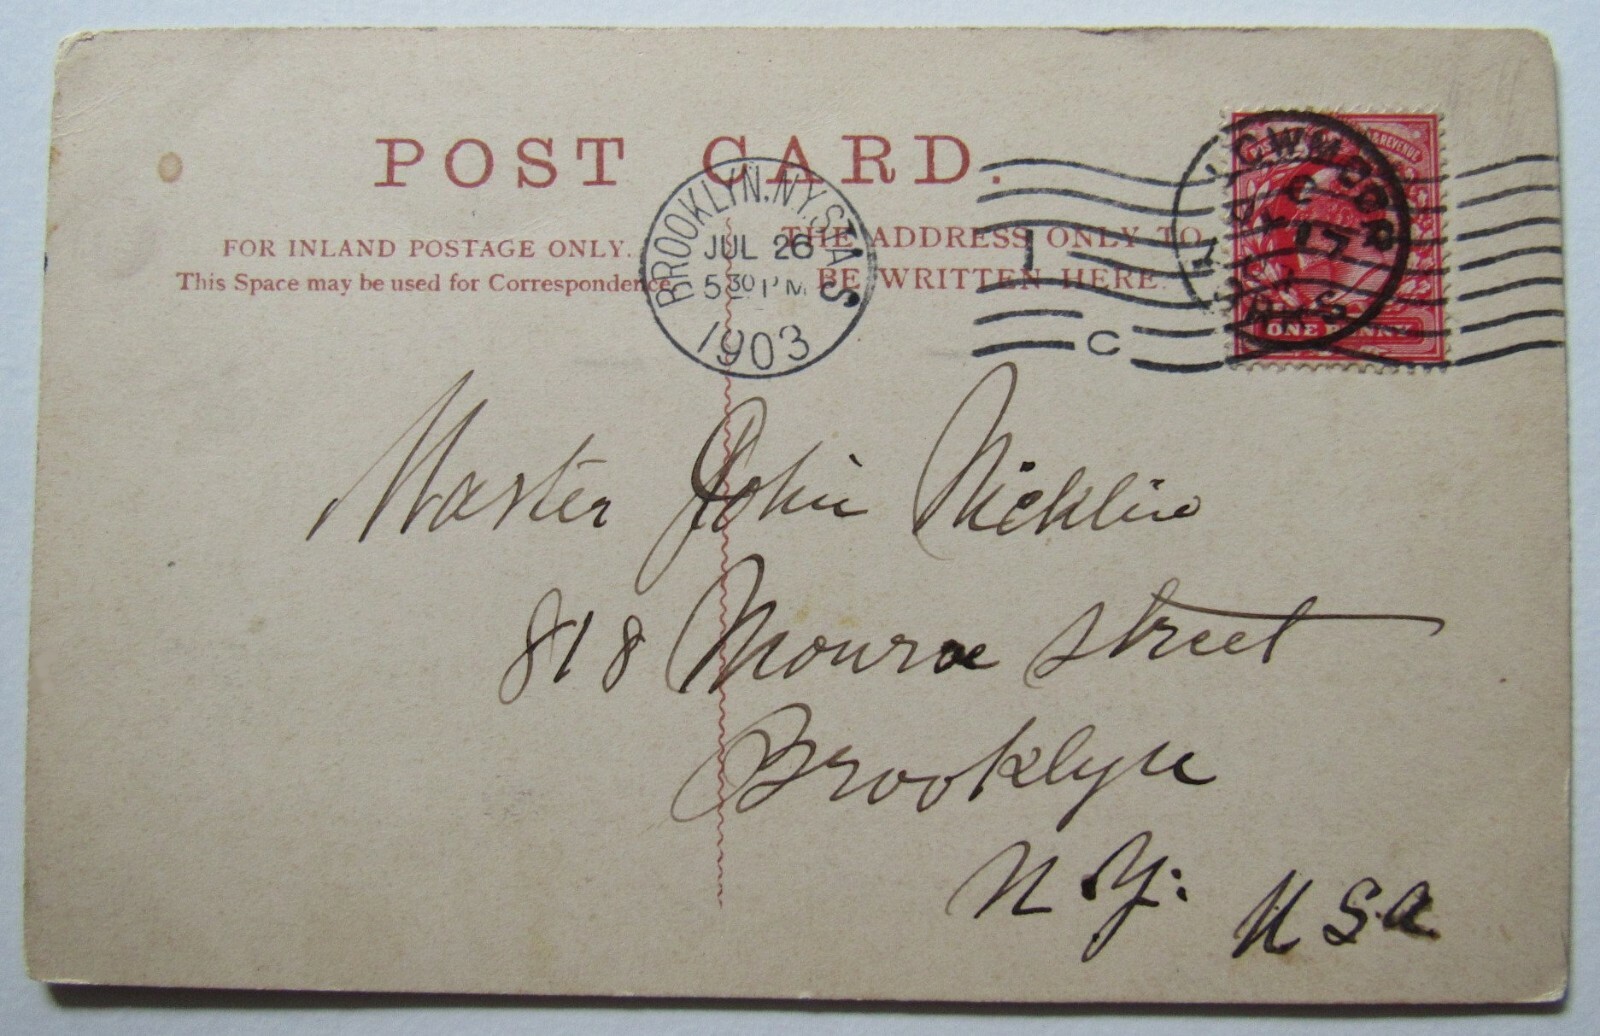 POST CARD.
FOR INLAND POSTAGE ONLY.
This Space may be used for Correspondence
THE ADDRESS ONLY TO
BE WRITTEN HERE.
BROOKLYN. N.Y. STA. S
JUL 26
5 30 PM
1903
1
C
CWMCOR
JY 17
POSTAGE & REVENUE
ONE PENNY
Master John Nicklin
818 Monroe Street
Brooklyn
N.Y.
USA